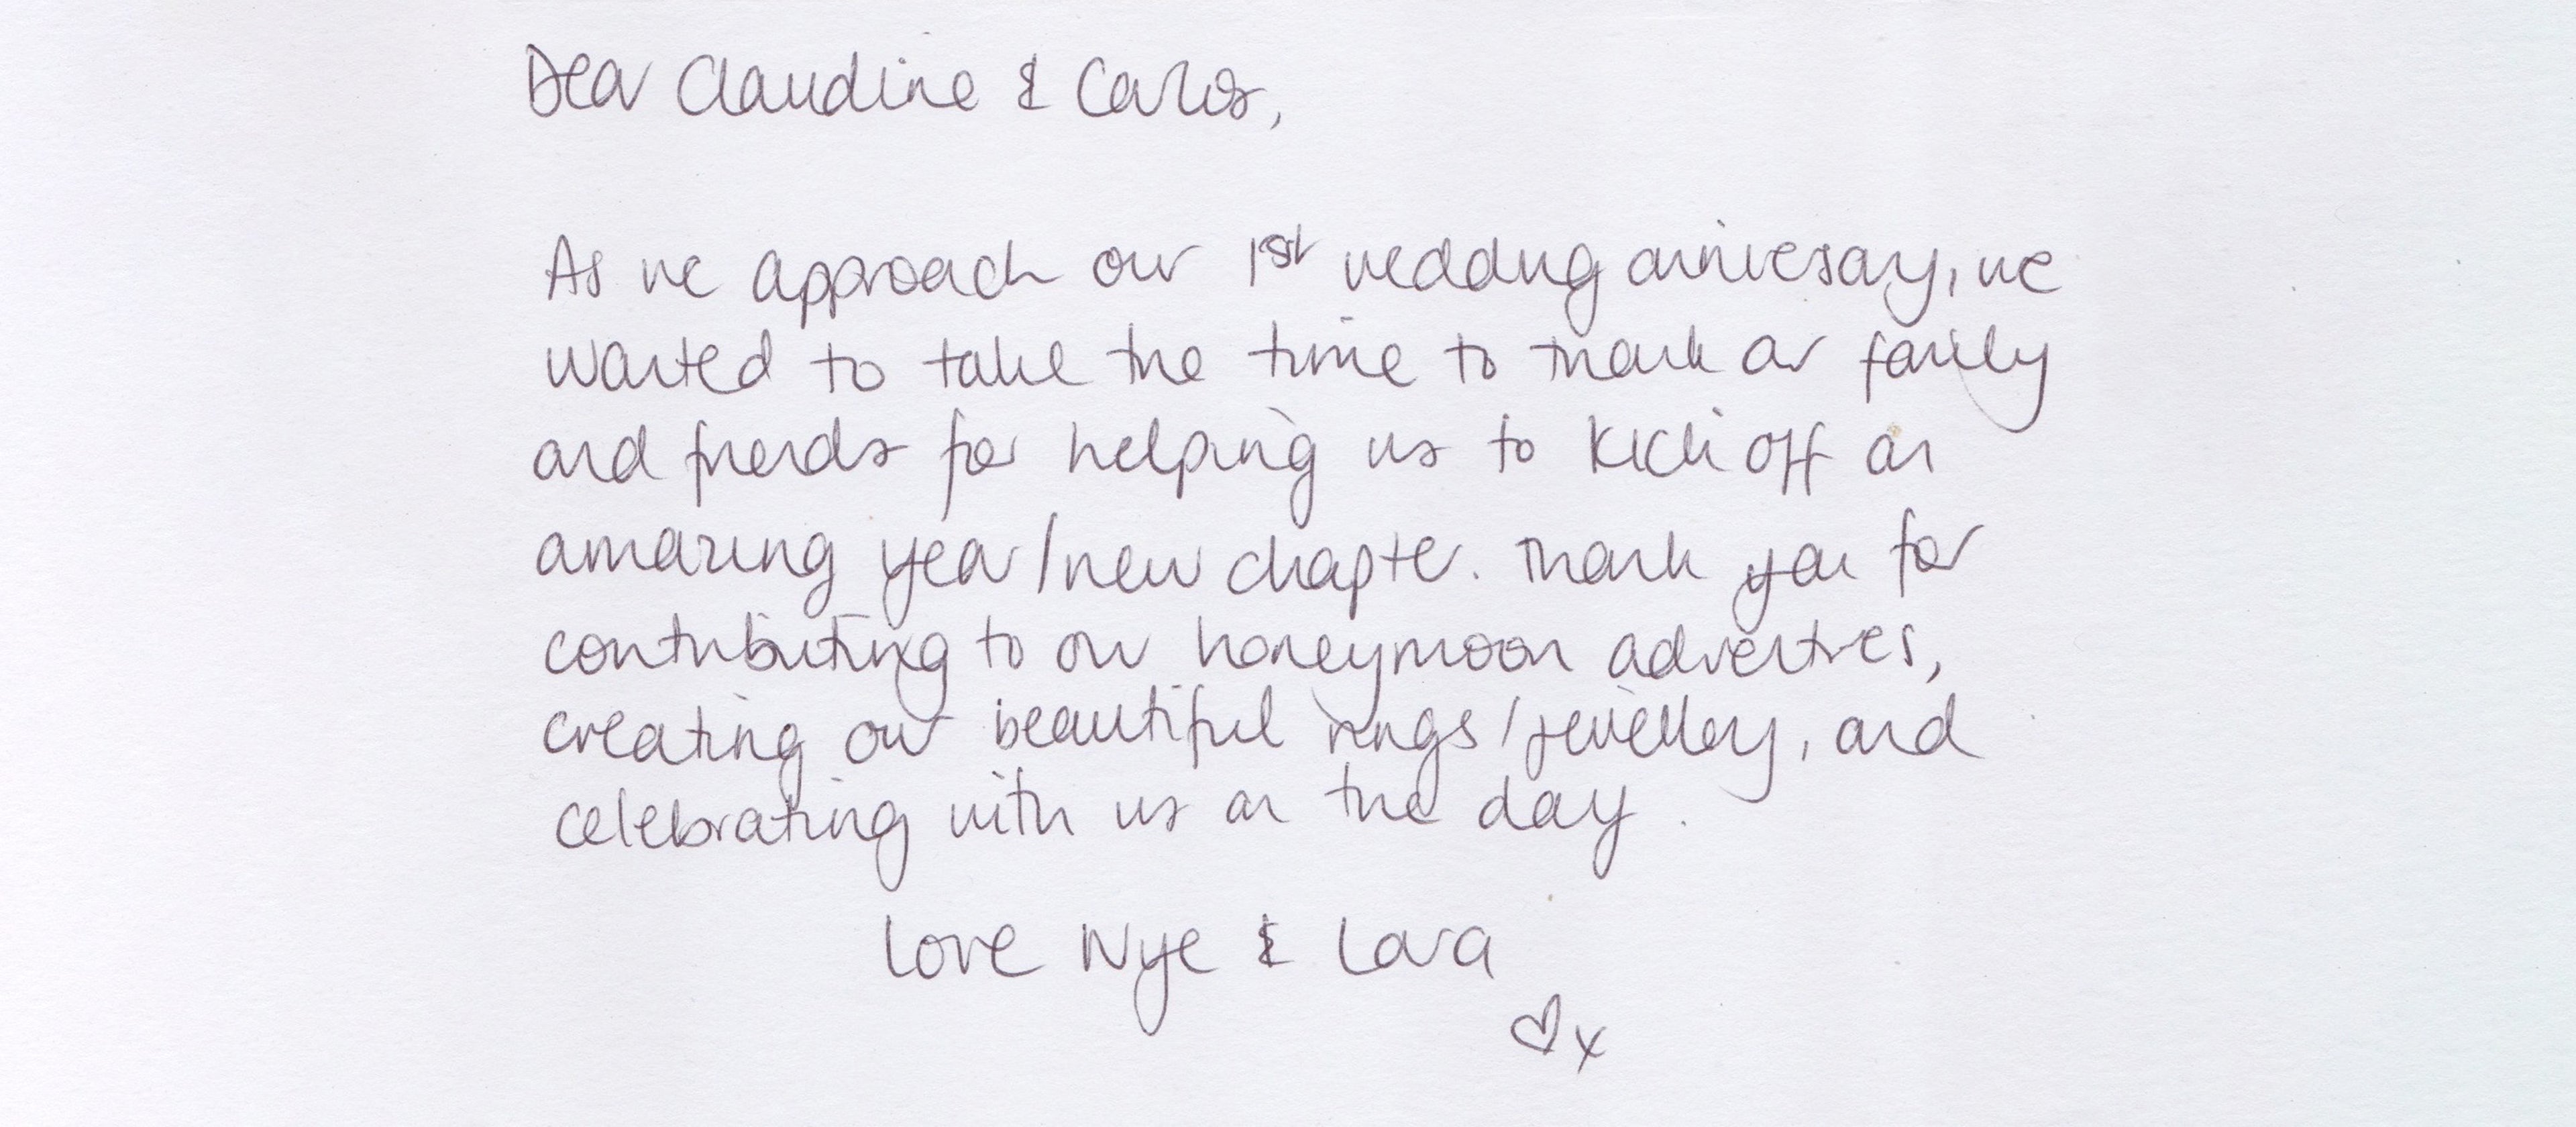 Dear Claudine & Carlos,
As we approach our 1st wedding anniversary, we
wanted to take the time to thank our family
and friends for helping us to kick off an
amazing year/new chapter. Thank you for
contributing to our honeymoon adventures,
creating our beautiful rings/jewellery, and
celebrating with us on the day.
Love Nye & Lara
♡x